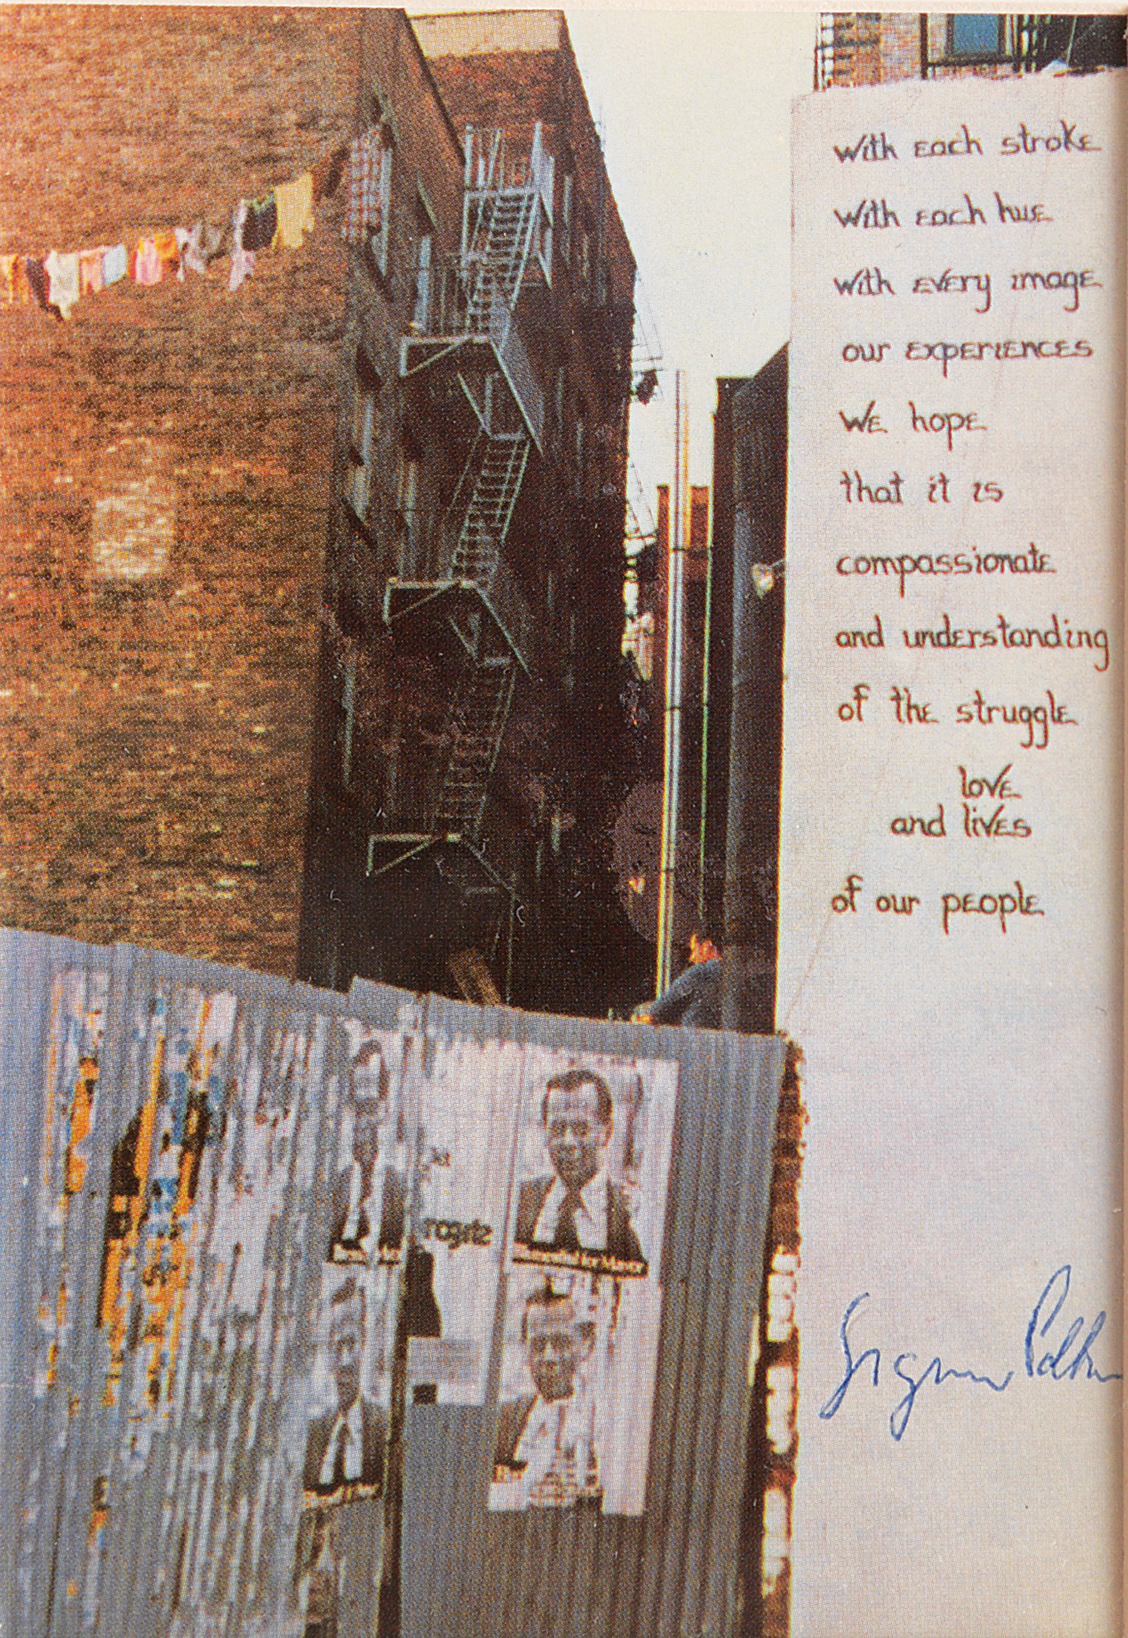 with each stroke
with each hue
with every image
our experiences
we hope
that it is
compassionate
and understanding
of the struggle
love
and lives
of our people
Blumenthal for Mayor